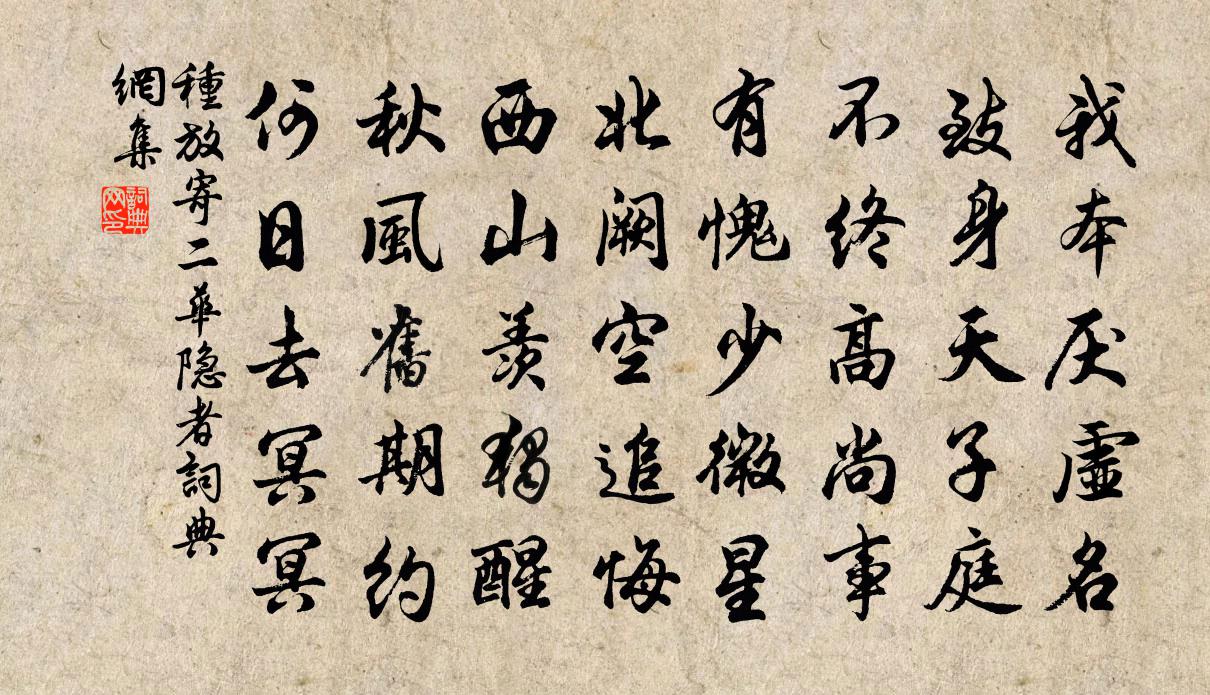 我本厌虛名
致身天子庭
不终高尚事
有愧少微星
北阙空追悔
西山羡独醒
秋風舊期约
何日去冥冥
種放寄二華隐者詞典
網集
詞典
网印